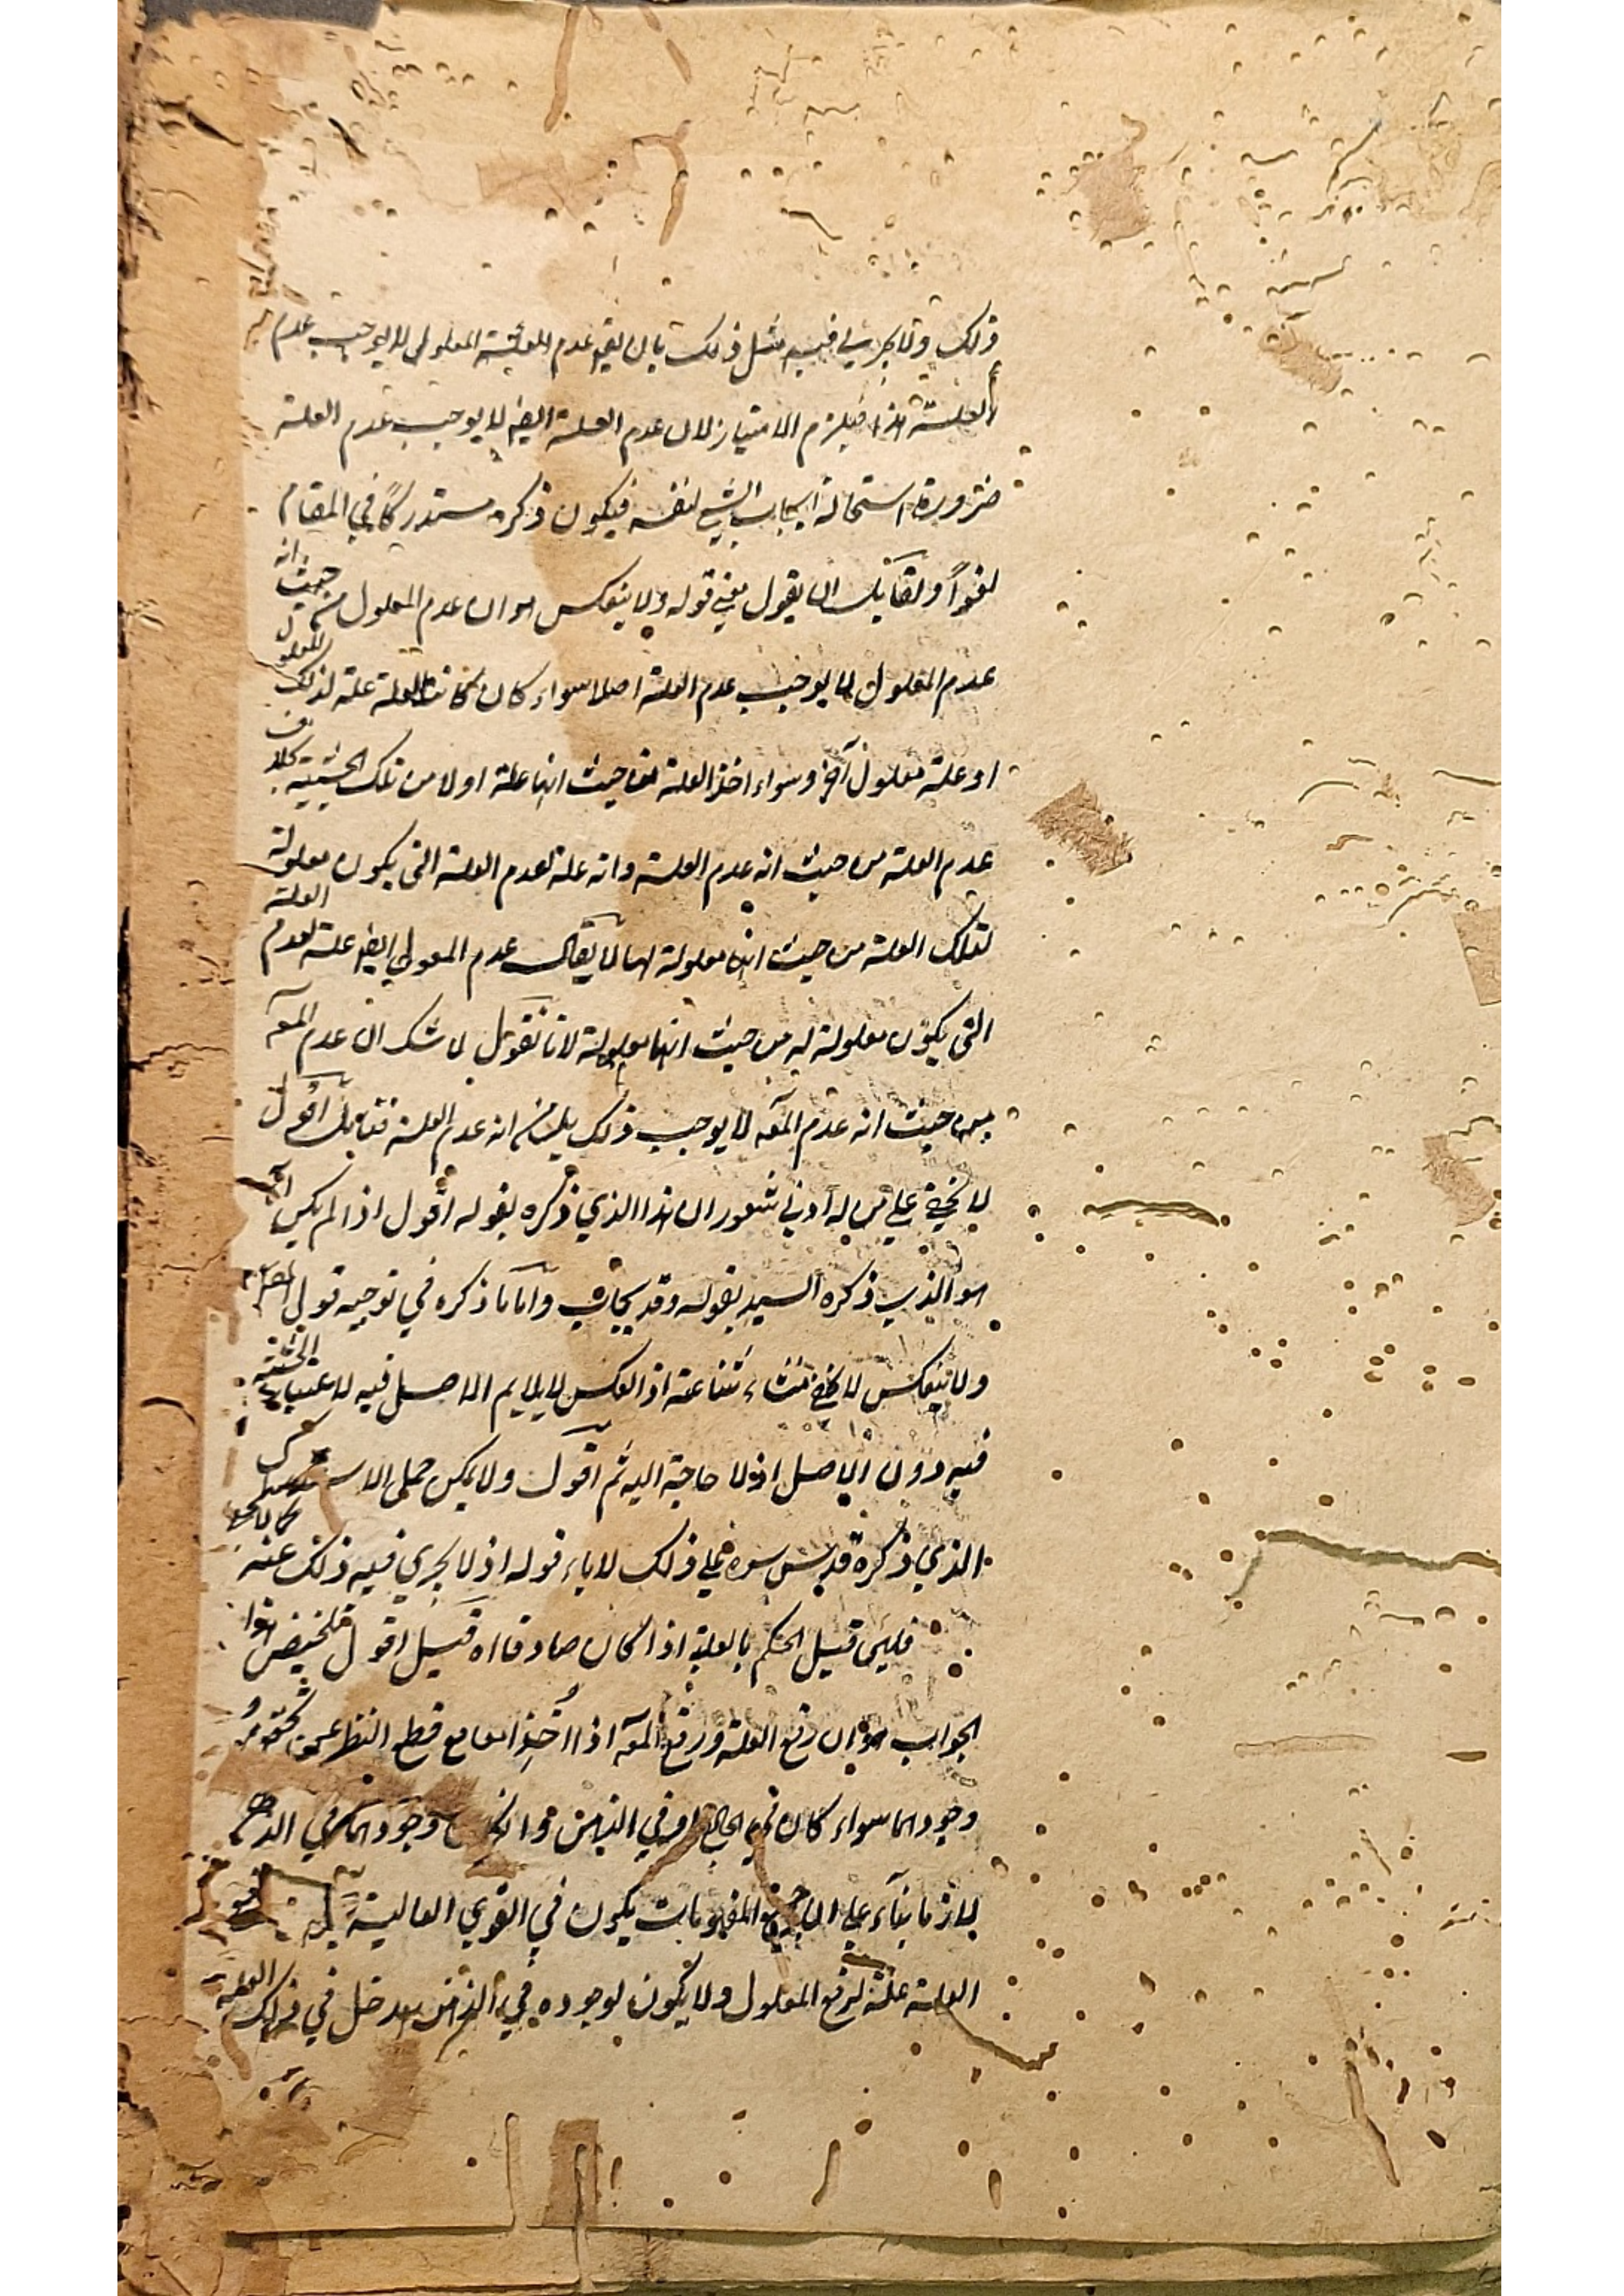 ذلك وقد يجري فيه مثل ذلك بان يقال عدم العلة المعلول لا يوجب عدم
العلة هذا فيلزم الامتياز لان عدم العلة ايضا لا يوجب عدم العلة
ضرورة استحالة ايجاب الشيء لنفسه فيكون ذكره مستدركا في المقام
لغوا ولقائل ان يقول معنى قوله ولا ينعكس هو ان عدم المعلول من حيث انه
عدم المعلول لا يوجب عدم العلة اصلا سواء كان كانت العلة علة لذلك المعلول
او علة معلول آخر وسواء اخذ العلة من حيث انها علة اولا من تلك الحيثية بخلاف
عدم العلة من حيث انه عدم العلة وانه علة لعدم العلة التي يكون معلولة
لتلك العلة من حيث انها معلولة لها لا يقال عدم المعلول ايضا علة لعدم العلة
التي يكون معلولة له من حيث انها معلولة لانا نقول لا شك ان عدم المعلول
من حيث انه عدم المعلول لا يوجب ذلك بل من انه عدم العلة فتأمل اقول
لا يخفى على من له ادنى شعور ان هذا الذي ذكره بقوله اقول اذا لم يكن
هو الذي ذكره السيد بقوله وقد يجاب واما ما ذكره في توجيه قول المصنف
ولا ينعكس لا يخفى شناعته اذ العكس لا يلايم الاصل فيه لاعتبار الحيثية
فيه دون الاصل اذ لا حاجة اليه ثم اقول ولا يمكن حمل
الذي ذكره قدس سره على ذلك لاباء قوله اذ لا يجري فيه ذلك عنه
فلئن قيل الحكم بالعلية اذا كان صادقا اه قيل اقول تلخيص هذا
الجواب هو ان رفع العلة ورفع المعلول اذا اخذا معا مع قطع النظر عن
وجودهما سواء كان في الخارج او في الذهن وان كان وجودهما في الذهن
لازما بناء على ان جميع المفهومات يكون في القوى العالية
العلة علة لرفع المعلول ولا يكون لوجوده في الذهن مدخل في ذلك العلية